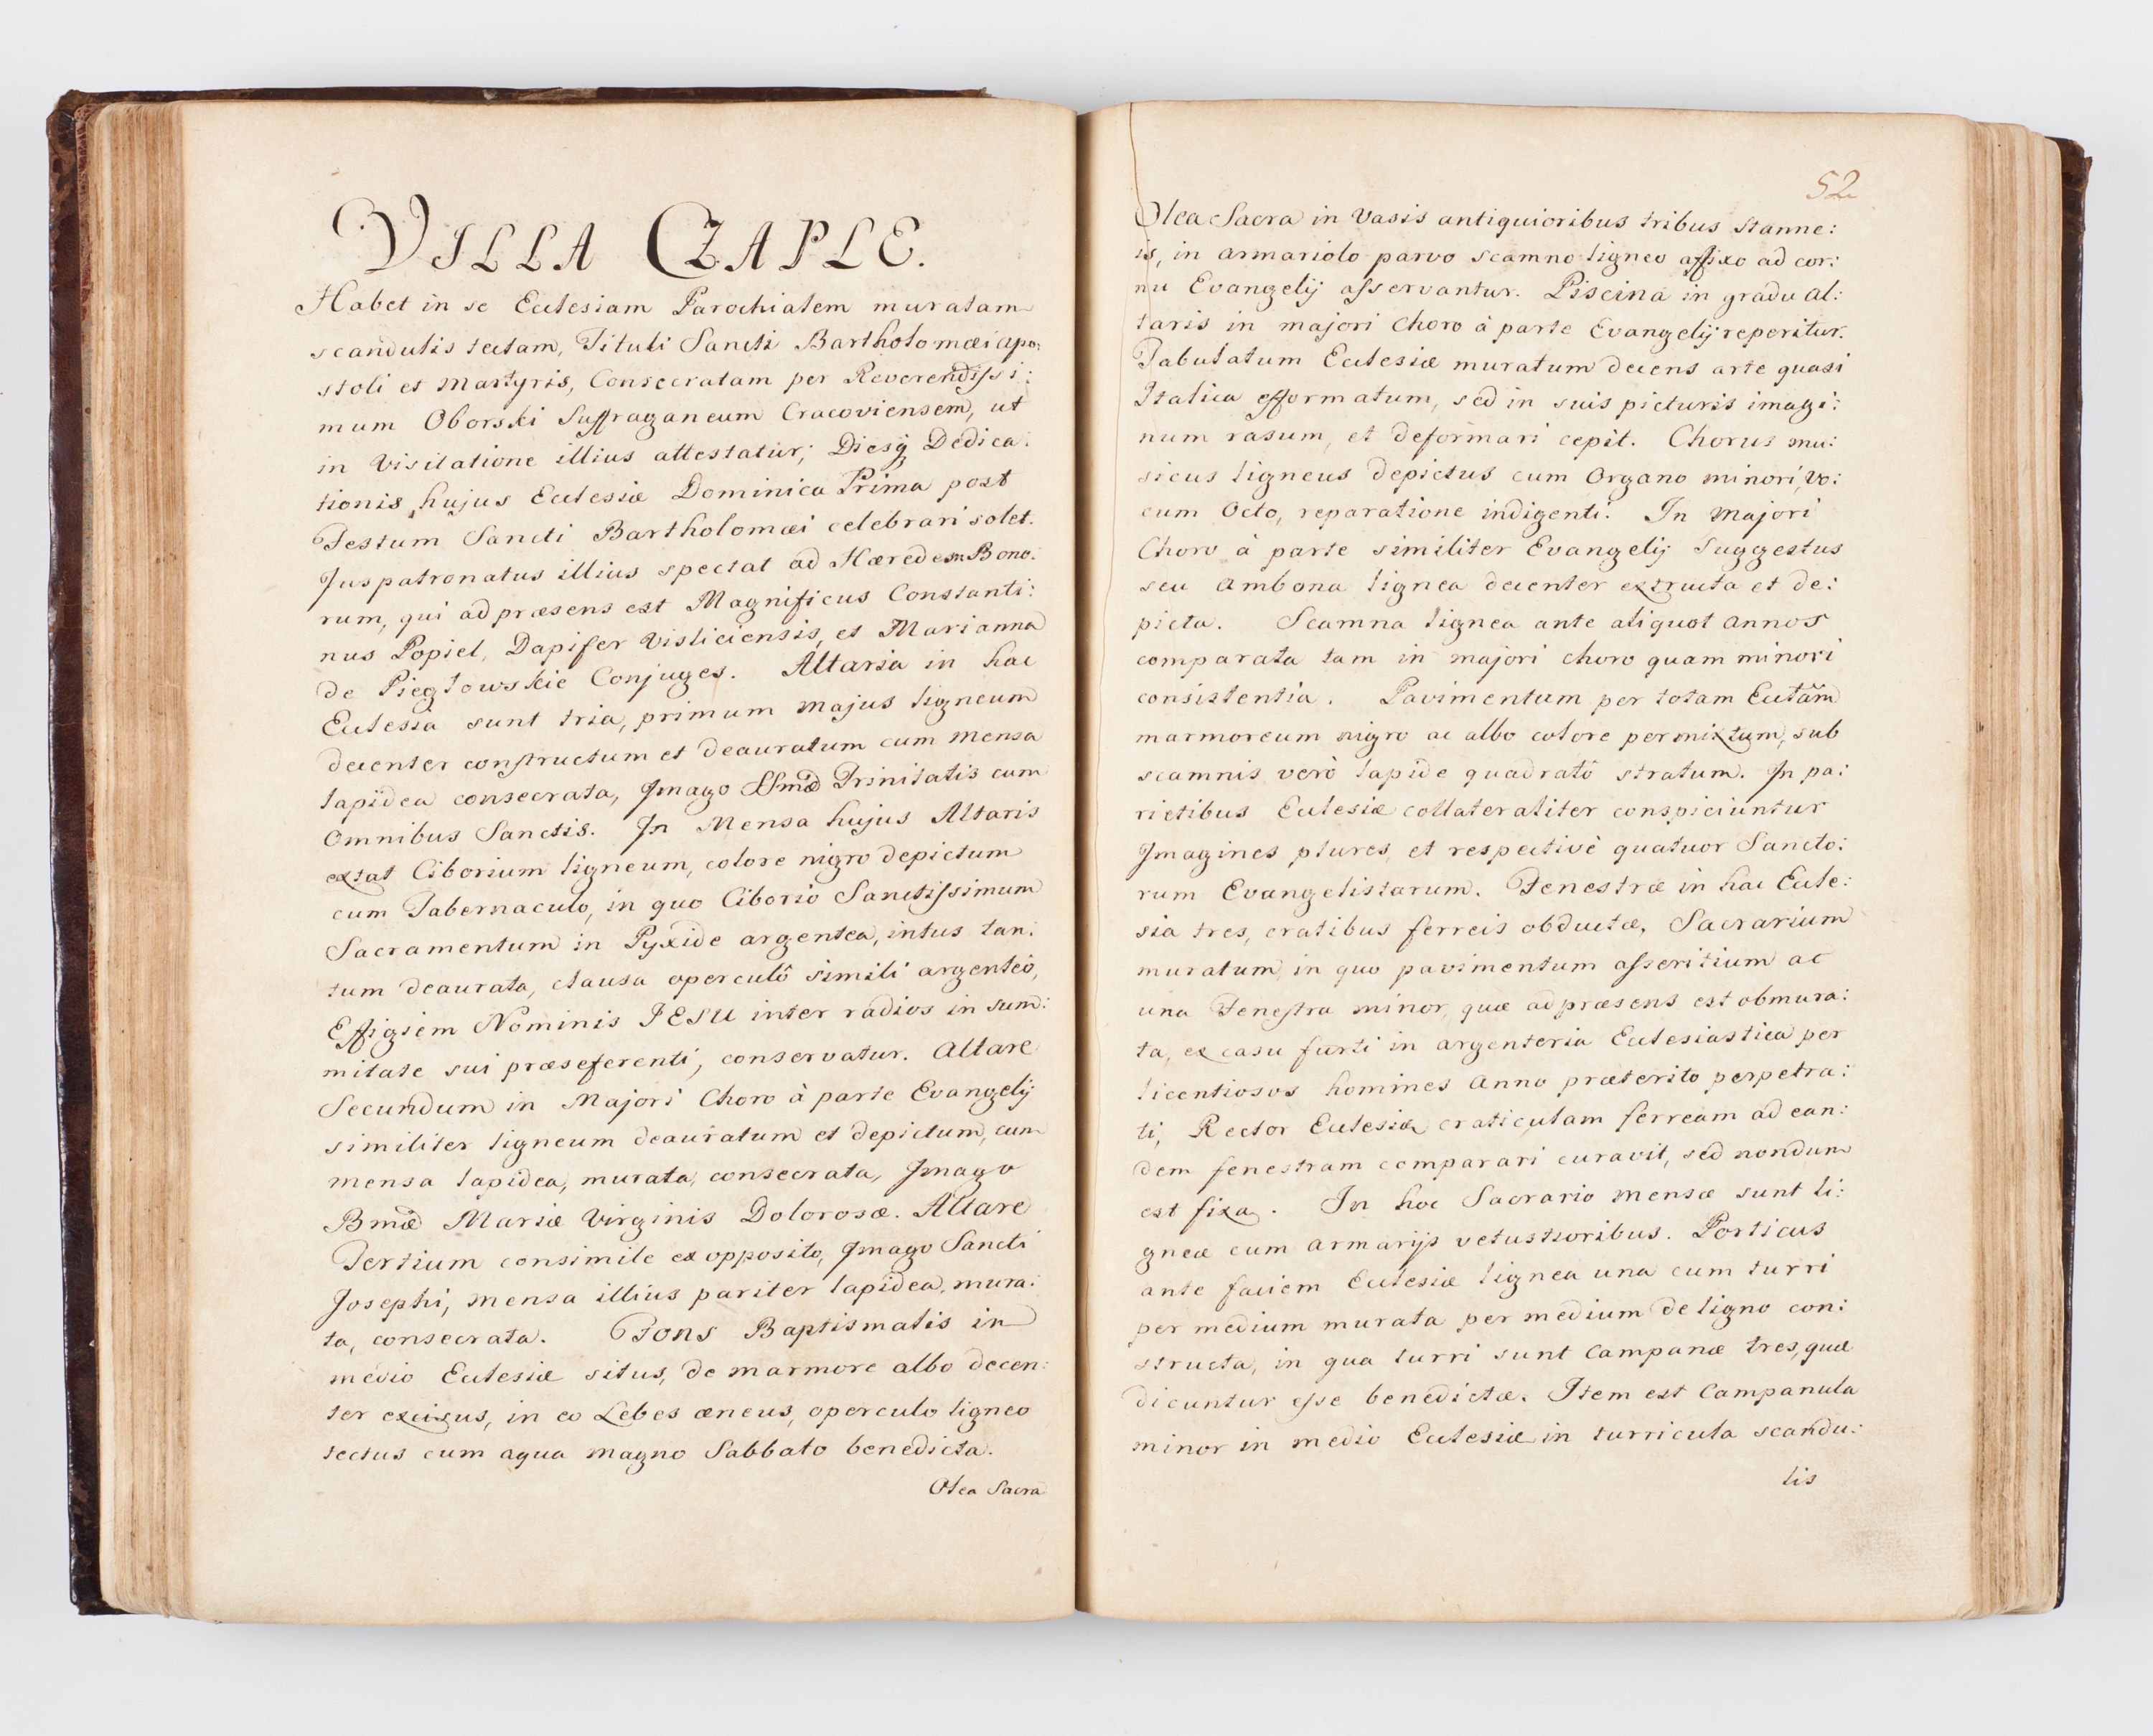 VILLA CZAPLE.
Habet in se Ecclesiam Parochialem muratam
scandulis tectam, Tituli Sancti Bartholomæi Apo:
stoli et Martyris, Consecratam per Reverendissi:
mum Oborski Suffraganeum Cracoviensem, ut
in Visitatione illius attestatur; Diesq́ Dedica:
tionis hujus Ecclesiæ Dominica Prima post
Festum Sancti Bartholomæi celebrari solet.
Juspatronatus illius spectat ad Hæredem Bono:
rum, qui ad præsens est Magnificus Constanti:
nus Popiel, Dapifer Visliciensis, et Marianna
de Piegłowskie Conjuges. Altaria in hac
Ecclesia sunt tria, primum majus ligneum
decenter constructum et deauratum cum mensa
lapidea consecrata, Jmago SSmæ Trinitatis cum
Omnibus Sanctis. Jn Mensa hujus Altaris
extat Ciborium ligneum, colore nigro depictum
cum Tabernaculo, in quo Ciborio Sanctissimum
Sacramentum in Pyxide argentea, intus tan:
tum deaurata, clausa operculô simili argenteô,
Effigiem Nominis JESU inter radios in sum:
mitate sui præseferenti, conservatur. Altare
Secundum in Majori Choro à parte Evangelij
similiter ligneum deauratum et depictum, cum
mensa lapidea, murata, consecrata, Jmago
Bmæ Mariæ Virginis Dolorosæ. Altare
Tertium consimile ex opposito, Jmago Sancti
Josephi, mensa illius pariter lapidea, mura:
ta, consecrata. Fons Baptismatis in
medio Ecclesiæ situs, de marmore albo decen:
ter excisus, in eo Lebes æneus, operculo ligneo
tectus cum aqua magno Sabbato benedicta.
Olea Sacra
52
Olea Sacra in Vasis antiquioribus tribus stanne:
is, in armariolo parvo scamno ligneo affixo ad cor:
nu Evangelij asservantur. Piscina in gradu al:
taris in majori Choro à parte Evangelij reperitur.
Tabulatum Ecclesiæ muratum decens arte quasi
Italica efformatum, sed in suis picturis imagi:
num rasum, et deformari cepit. Chorus mu:
sicus ligneus depictus cum Organo minori, vo:
cum Octo, reparatione indigenti. In majori
Choro à parte similiter Evangelij Suggestus
seu Ambona lignea decenter extructa et de:
picta. Scamna lignea ante aliquot annos
comparata tam in majori choro quam minori
consistentia. Pavimentum per totam Ecclam̃
marmoreum nigro ac albo colore permixtum, sub
scamnis verò lapide quadratô stratum. Jn pa:
rietibus Ecclesiæ collateraliter conspiciuntur
Jmagines plures, et respectivè quatuor Sancto:
rum Evangelistarum. Fenestræ in hac Eccle:
sia tres, cratibus ferreis obductæ, Sacrarium
muratum in quo pavimentum asseritium ac
una Fenestra minor, quæ ad præsens est obmura:
ta, ex casu furti in argenteria Ecclesiastica per
licentiosos homines Anno præterito perpetra:
ti, Rector Ecclesiæ craticulam ferream ad ean:
dem fenestram comparari curavit, sed nondum
est fixa. In hoc Sacrario mensæ sunt li:
gneæ cum armarijs vetustioribus. Porticus
ante faciem Ecclesiæ lignea una cum turri
per medium murata per medium de ligno con:
structa, in qua turri sunt Campanæ tres, quæ
dicuntur esse benedictæ. Item est Campanula
minor in medio Ecclesiæ in turricula scandu:
lis